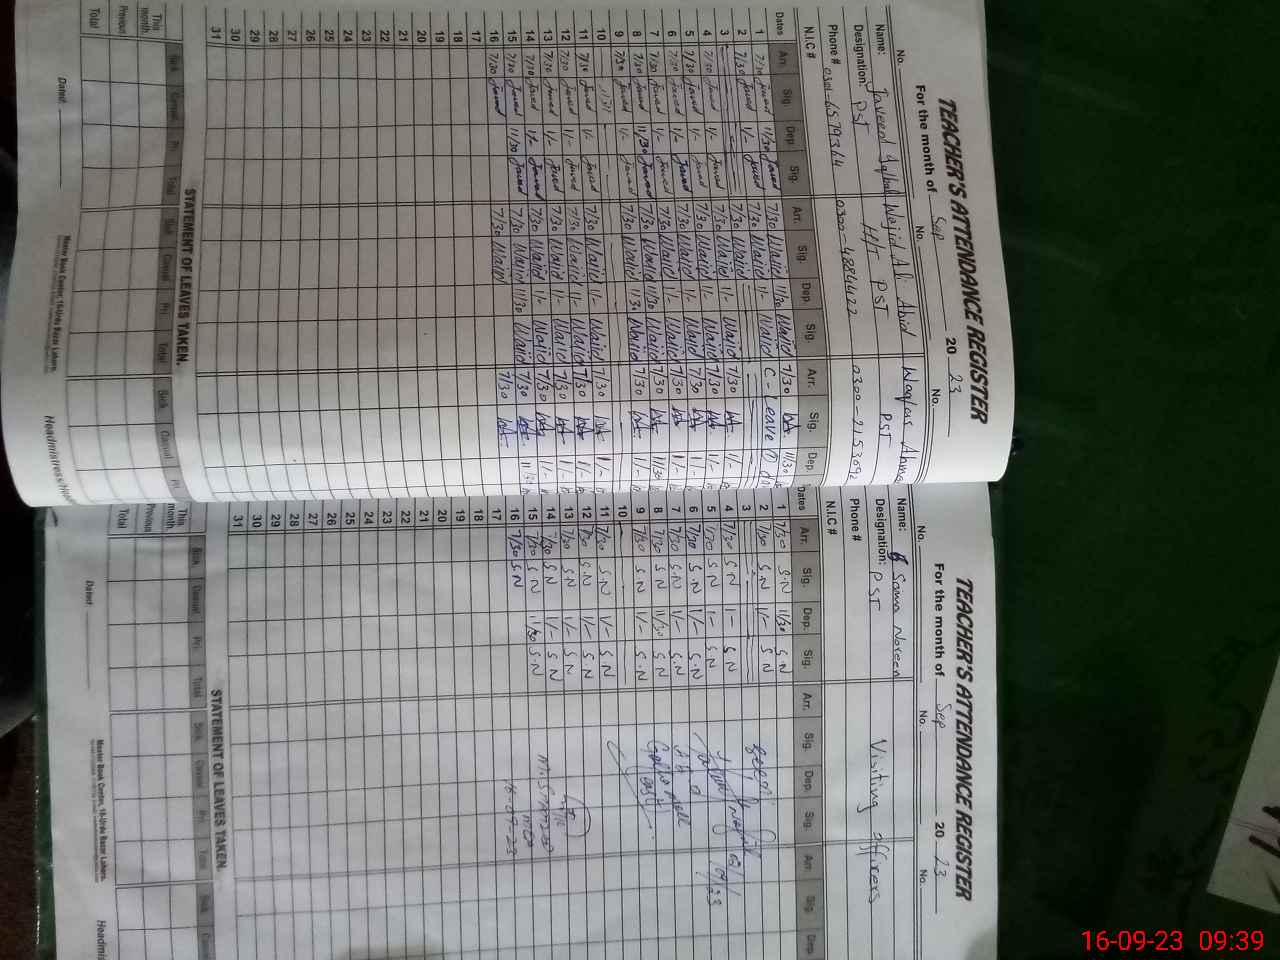 TEACHER'S ATTENDANCE REGISTER
For the month of Sep 20 23
No. No. No.
Name: Javeed Iqbal Wajid Ali Abid Waqas Ahma
Designation: PST H/T PST PST
Phone # 0300-4884422 0300-2153092
N.I.C #
Dates Arr. Sig. Dep. Sig. Arr. Sig. Dep. Sig. Arr. Sig. Dep.
1 7/30 Javed 11/30 Javed 7/30 Wajid 11/30 Wajid 7/30 11/30
2 7/30 Javed 1/- Javed 7/30 Wajid 1/- Wajid C-Leave
3
4 7/30 Javed 1/- Javed 7/30 Wajid 1/- Wajid 7/30 1/-
5 7/30 Javed 1/- Javed 7/30 Wajid 1/- Wajid 7/30 1/-
6 7/30 Javed 1/- Javed 7/30 Wajid 1/- Wajid 7/30 1/-
7 7/30 Javed 1/- Javed 7/30 Wajid 1/- Wajid 7/30 1/-
8 7/30 Javed 11/30 Javed 7/30 Wajid 11/30 Wajid 7/30 11/30
9 7/30 Javed 1/- Javed 7/30 Wajid 11/30 Wajid 7/30 1/-
10
11 7/30 Javed 1/- Javed 7/30 Wajid 1/- Wajid 7/30 1/-
12 7/30 Javed 1/- Javed 7/30 Wajid 1/- Wajid 7/30 1/-
13 7/30 Javed 1/- Javed 7/30 Wajid 1/- Wajid 7/30 1/-
14 7/30 Javed 1/- Javed 7/30 Wajid 1/- Wajid 7/30 1/-
15 7/30 Javed 11/30 Javed 7/30 Wajid 11/30 Wajid 7/30 11/30
16 7/30 Javed 7/30 Wajid 7/30
17
18
19
20
21
22
23
24
25
26
27
28
29
30
31
STATEMENT OF LEAVES TAKEN.
Sick Casual Pri. Total Sick Casual Pri. Total Sick Casual Pri.
This month
Previous
Total
Dated:
Master Book Center, 16-Urdu Bazar Lahore.
TEACHER'S ATTENDANCE REGISTER
For the month of Sep 20 23
No. No. No.
Name: Sama Noreen Visiting officers
Designation: PST
Phone #
N.I.C #
Dates Arr. Sig. Dep. Sig. Arr. Sig. Dep. Sig. Arr. Sig. Dep.
1 7/30 S.N 11/30 S.N
2 7/30 S.N 1/- S.N
3
4 7/30 S.N 1- S.N
5 7/30 S.N 1- S.N
6 7/30 S.N 1/- S.N
7 7/30 S.N 1/- S.N
8 7/30 S.N 11/30 S.N
9 7/30 S.N 1/- S.N
10
11 7/30 S.N 1/- S.N
12 7/30 S.N 1/- S.N
13 7/30 S.N 1/- S.N
14 7/30 S.N 1/- S.N
15 7/30 S.N 11/30 S.N
16 7/30 S.N
17
18
19
20
21
22
23
24
25
26
27
28
29
30
31
16-09-23
STATEMENT OF LEAVES TAKEN.
Sick Casual Pri. Total Sick Casual Pri. Total Sick
This month
Previous
Total
Dated:
Master Book Center, 16-Urdu Bazar Lahore.
16-09-23 09:39